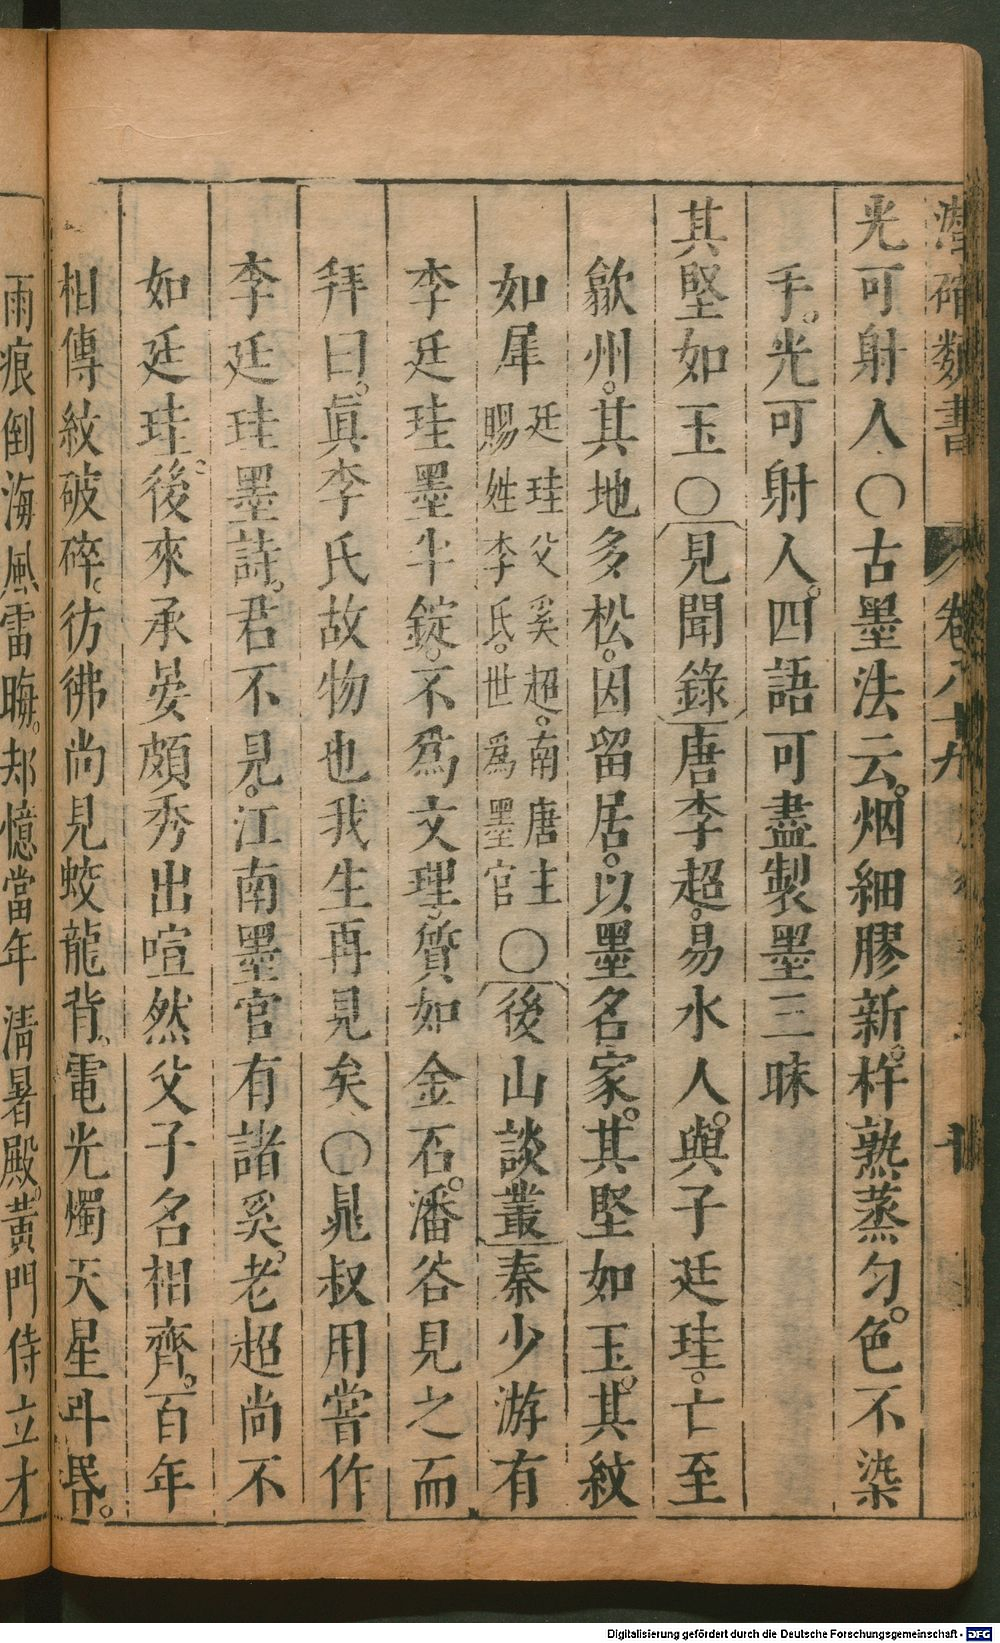 潛確類書 卷八十九 十
光可射人〇古墨法云。烟細膠新。杵熟蒸勻。色不染
手。光可射人。四語可盡製墨三昧
其堅如玉〇見聞錄唐李超。易水人。與子廷珪。亡至
歙州。其地多松。因留居。以墨名家。其堅如玉。其紋
如犀廷珪父奚超。南唐主賜姓李氏。世爲墨官〇後山談叢秦少游有
李廷珪墨半錠。不爲文理。質如金石。潘谷見之而
拜曰。眞李氏故物也我生再見矣〇晁叔用嘗作
李廷珪墨詩。君不見。江南墨官有諸奚。老超尚不
如廷珪。後來承晏頗秀出喧然父子名相齊。百年
相傳紋破碎。彷彿尚見蛟龍背。電光燭天星斗昏。
雨痕倒海風雷晦。却憶當年清暑殿。黃門侍立才
Digitalisierung gefördert durch die Deutsche Forschungsgemeinschaft - DFG